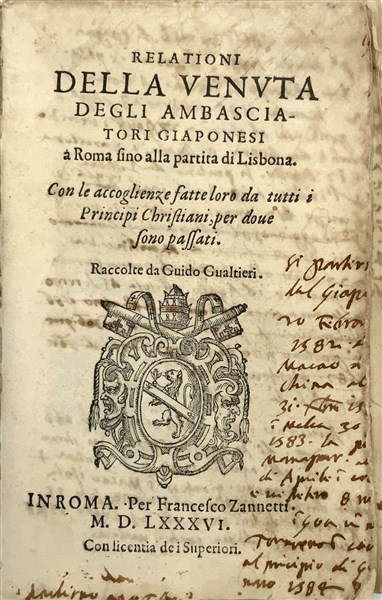 RELATIONI
DELLA VENVTA
DEGLI AMBASCIA-
TORI GIAPONESI
à Roma sino alla partita di Lisbona.
Con le accoglienze fatte loro da tutti i
Principi Christiani, per doue
sono passati.
Raccolte da Guido Gualtieri.
IN ROMA. Per Francesco Zannetti.
M. D. LXXXVI.
Con licentia de i Superiori.
Si partiro
dal Giapo
20 Febra
1582.
Macao
China al
31
30
1583. la
Manapar. al
di Aprile
8
al principio di G
naro 1584